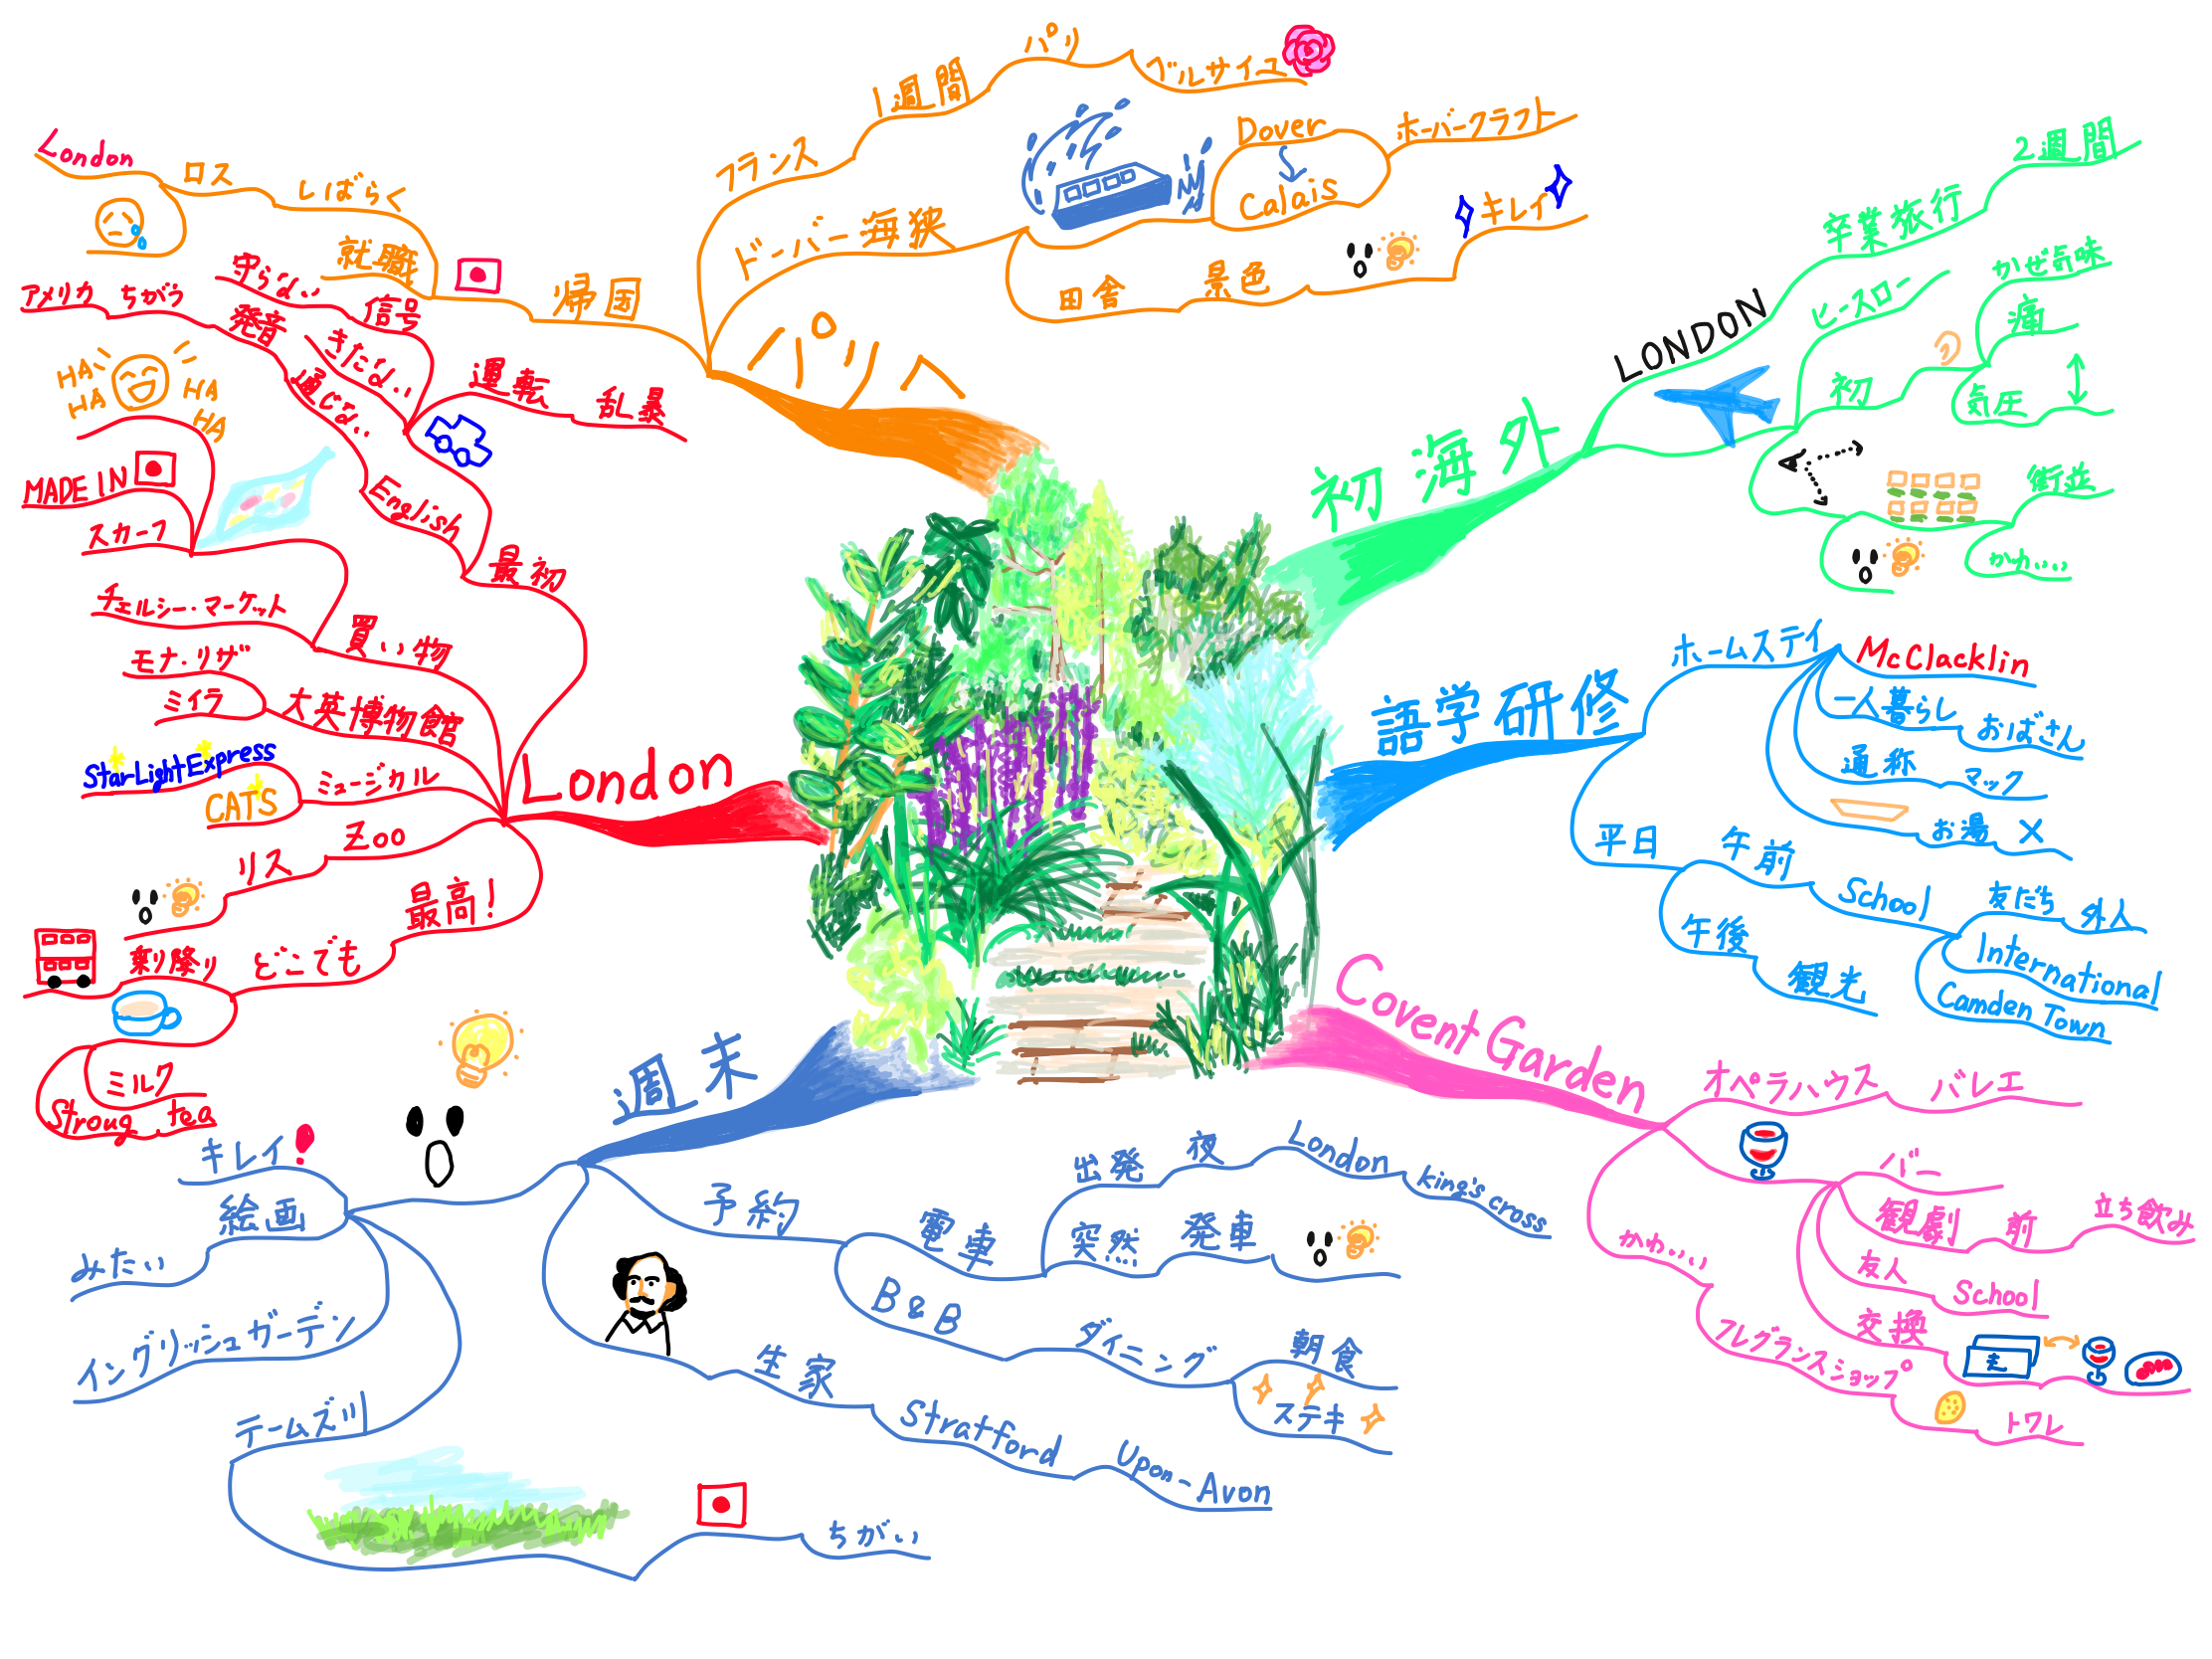 初海外
LONDON
卒業旅行
2週間
ヒースロー
初
かぜ気味
痛
気圧
街並
かわいい
語学研修
ホームステイ
McClacklin
一人暮らし
おばさん
通称
マック
お湯 ×
平日
午前
School
友だち
外人
International
Camden Town
午後
観光
Covent Garden
オペラハウス
バレエ
バー
観劇
前
立ち飲み
友人
School
交換
かわいい
フレグランスショップ
トワレ
週末
予約
電車
出発
夜
London
king's cross
突然
発車
B&B
ダイニング
朝食
ステキ
生家
Stratford
Upon-Avon
キレイ!
絵画
みたい
イングリッシュガーデン
テームズ川
ちがい
London
最初
運転
乱暴
信号
守らない
きたない
English
通じない
発音
ちがう
アメリカ
HA HA HA HA HA
買い物
スカーフ
MADE IN
チェルシー・マーケット
大英博物館
モナ・リザ
ミイラ
ミュージカル
StarLightExpress
CATS
Zoo
リス
最高!
どこでも
乗り降り
ミルク
Stroug tea
パリへ
フランス
1週間
パリ
ベルサイユ
ドーバー海狭
Dover
Calais
ホーバークラフト
田舎
景色
キレイ
帰国
就職
しばらく
ロス
London